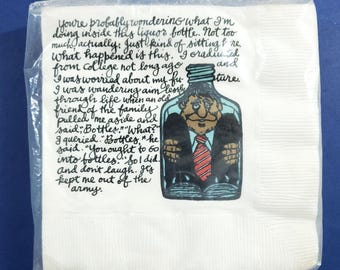 You're probably wondering what I'm
doing inside this liquor bottle. Not too
much actually. Just kind of sitting here.
What happened is this. I graduated
from college not long ago and
I was worried about my future.
I was wandering aimlessly
through life when an old
friend of the family
pulled me aside and
said, "Bottles." "What?"
I queried. "Bottles," he
said. "You ought to go
into bottles." So I did.
and don't laugh. It's
kept me out of the
army.